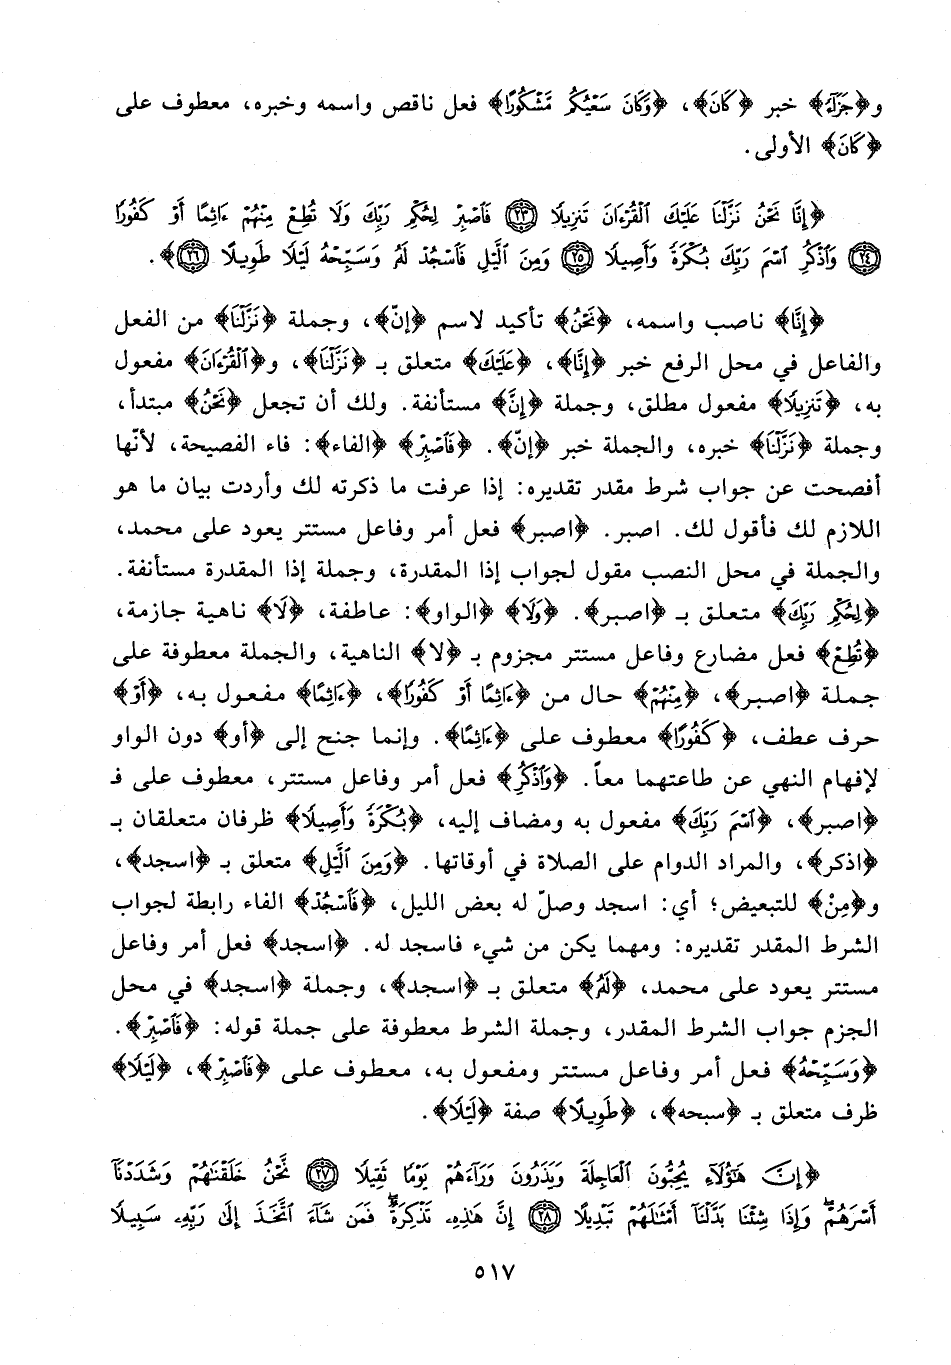 و﴿جَزَاءً﴾ خبر ﴿كَانَ﴾، ﴿وَكَانَ سَعْيُكُم مَّشْكُورًا﴾ فعل ناقص واسمه وخبره، معطوف على
﴿كَانَ﴾ الأولى.
﴿إِنَّا نَحْنُ نَزَّلْنَا عَلَيْكَ ٱلْقُرْءَانَ تَنزِيلًا ﴿٢٣﴾ فَٱصْبِرْ لِحُكْمِ رَبِّكَ وَلَا تُطِعْ مِنْهُمْ ءَاثِمًا أَوْ كَفُورًا
﴿٢٤﴾ وَٱذْكُرِ ٱسْمَ رَبِّكَ بُكْرَةً وَأَصِيلًا ﴿٢٥﴾ وَمِنَ ٱلَّيْلِ فَٱسْجُدْ لَهُۥ وَسَبِّحْهُ لَيْلًا طَوِيلًا ﴿٢٦﴾﴾.
﴿إِنَّا﴾ ناصب واسمه، ﴿نَحْنُ﴾ تأكيد لاسم ﴿إنّ﴾، وجملة ﴿نَزَّلْنَا﴾ من الفعل
والفاعل في محل الرفع خبر ﴿إِنَّا﴾، ﴿عَلَيْكَ﴾ متعلق بـ ﴿نَزَّلْنَا﴾، و﴿ٱلْقُرْءَانَ﴾ مفعول
به، ﴿تَنزِيلًا﴾ مفعول مطلق، وجملة ﴿إِنَّ﴾ مستأنفة. ولك أن تجعل ﴿نَحْنُ﴾ مبتدأ،
وجملة ﴿نَزَّلْنَا﴾ خبره، والجملة خبر ﴿إنّ﴾. ﴿فَٱصْبِرْ﴾ ﴿الفاء﴾: فاء الفصيحة، لأنّها
أفصحت عن جواب شرط مقدر تقديره: إذا عرفت ما ذكرته لك وأردت بيان ما هو
اللازم لك فأقول لك. اصبر. ﴿اصبر﴾ فعل أمر وفاعل مستتر يعود على محمد،
والجملة في محل النصب مقول لجواب إذا المقدرة، وجملة إذا المقدرة مستأنفة.
﴿لِحُكْمِ رَبِّكَ﴾ متعلق بـ ﴿اصبر﴾. ﴿وَلَا﴾ ﴿الواو﴾: عاطفة، ﴿لَا﴾ ناهية جازمة،
﴿تُطِعْ﴾ فعل مضارع وفاعل مستتر مجزوم بـ ﴿لا﴾ الناهية، والجملة معطوفة على
جملة ﴿اصبر﴾، ﴿مِنْهُمْ﴾ حال من ﴿ءَاثِمًا أَوْ كَفُورًا﴾، ﴿ءَاثِمًا﴾ مفعول به، ﴿أَوْ﴾
حرف عطف، ﴿كَفُورًا﴾ معطوف على ﴿ءَاثِمًا﴾. وإنما جنح إلى ﴿أو﴾ دون الواو
لإفهام النهي عن طاعتهما معاً. ﴿وَٱذْكُرِ﴾ فعل أمر وفاعل مستتر، معطوف على فـ
﴿اصبر﴾، ﴿ٱسْمَ رَبِّكَ﴾ مفعول به ومضاف إليه، ﴿بُكْرَةً وَأَصِيلًا﴾ ظرفان متعلقان بـ
﴿اذكر﴾، والمراد الدوام على الصلاة في أوقاتها. ﴿وَمِنَ ٱلَّيْلِ﴾ متعلق بـ ﴿اسجد﴾،
و﴿مِنْ﴾ للتبعيض؛ أي: اسجد وصلّ له بعض الليل، ﴿فَٱسْجُدْ﴾ الفاء رابطة لجواب
الشرط المقدر تقديره: ومهما يكن من شيء فاسجد له. ﴿اسجد﴾ فعل أمر وفاعل
مستتر يعود على محمد، ﴿لَهُۥ﴾ متعلق بـ ﴿اسجد﴾، وجملة ﴿اسجد﴾ في محل
الجزم جواب الشرط المقدر، وجملة الشرط معطوفة على جملة قوله: ﴿فَٱصْبِرْ﴾.
﴿وَسَبِّحْهُ﴾ فعل أمر وفاعل مستتر ومفعول به، معطوف على ﴿فَٱصْبِرْ﴾، ﴿لَيْلًا﴾
ظرف متعلق بـ ﴿سبحه﴾، ﴿طَوِيلًا﴾ صفة ﴿لَيْلًا﴾.
﴿إِنَّ هَٰٓؤُلَآءِ يُحِبُّونَ ٱلْعَاجِلَةَ وَيَذَرُونَ وَرَآءَهُمْ يَوْمًا ثَقِيلًا ﴿٢٧﴾ نَّحْنُ خَلَقْنَٰهُمْ وَشَدَدْنَآ
أَسْرَهُمْ ۖ وَإِذَا شِئْنَا بَدَّلْنَآ أَمْثَٰلَهُمْ تَبْدِيلًا ﴿٢٨﴾ إِنَّ هَٰذِهِۦ تَذْكِرَةٌ ۖ فَمَن شَآءَ ٱتَّخَذَ إِلَىٰ رَبِّهِۦ سَبِيلًا
٥١٧